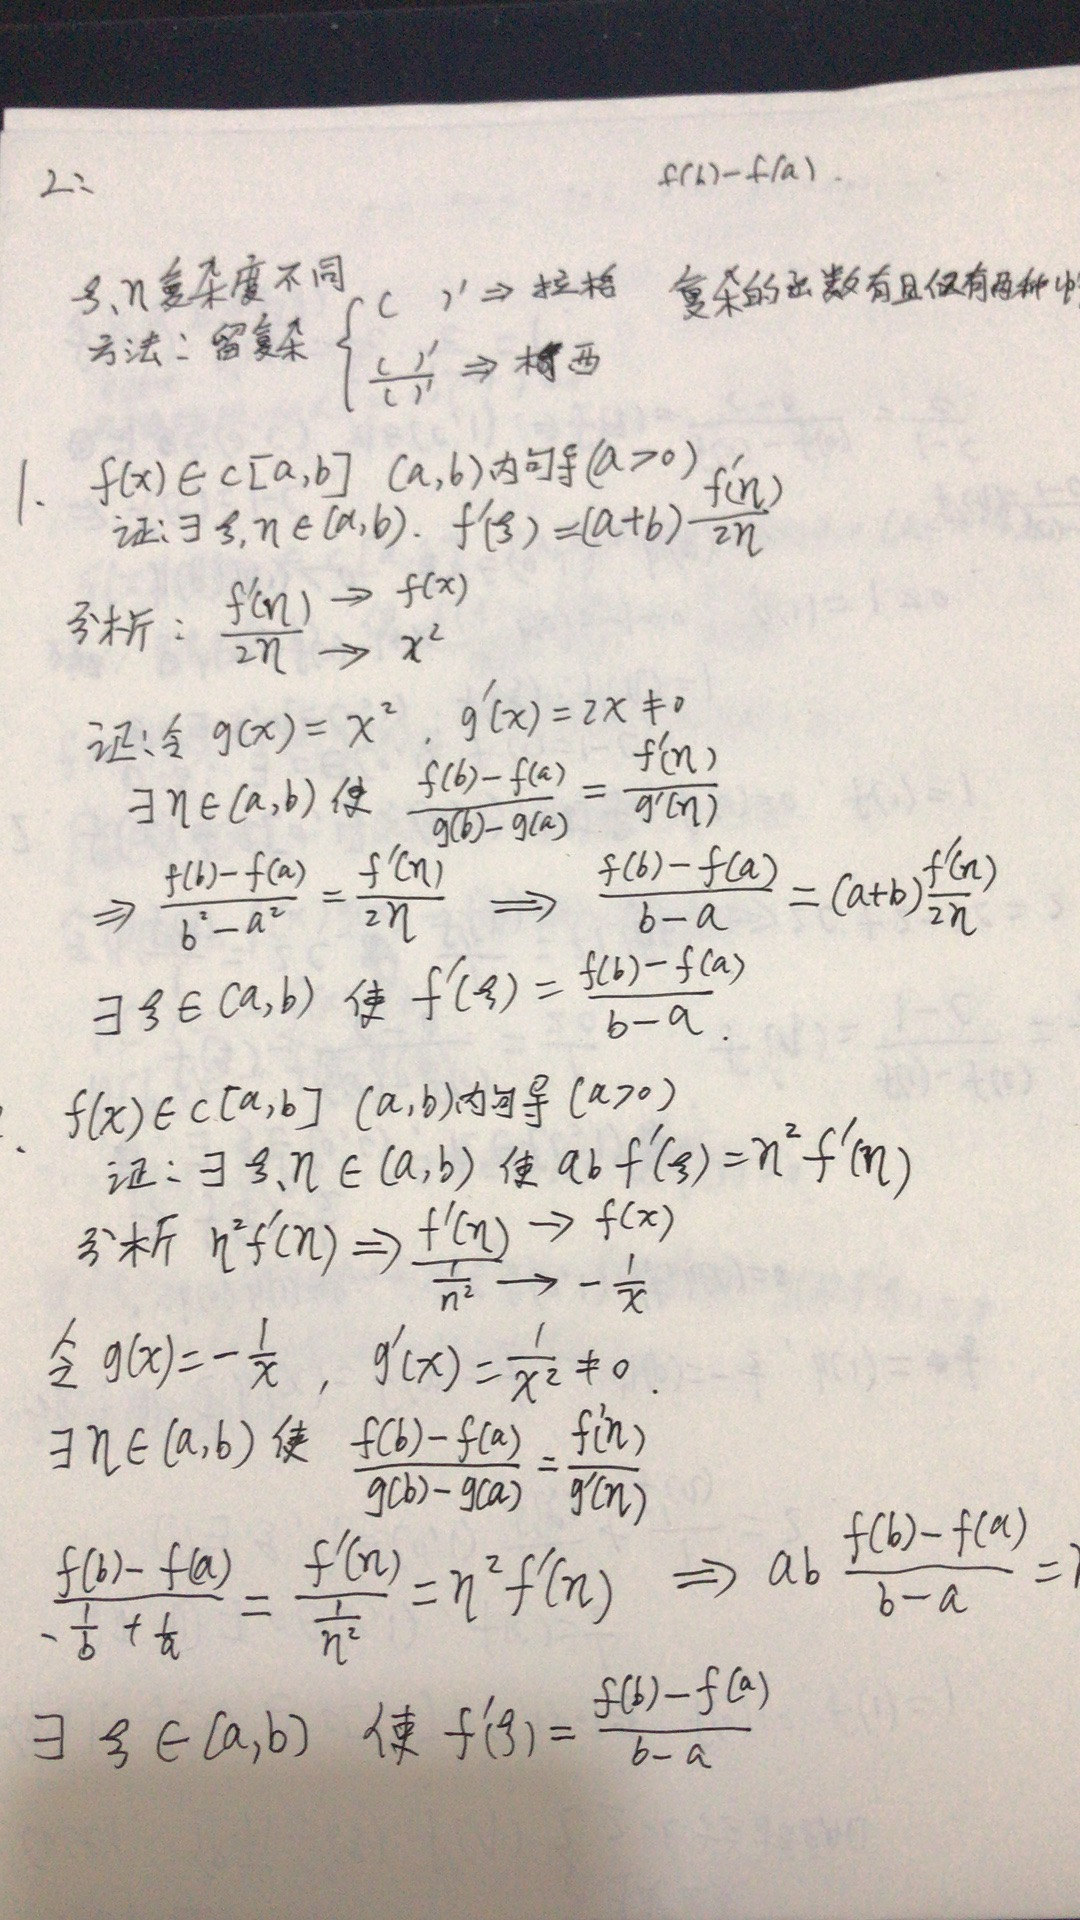 2:
f(b)-f(a).
ξ、η复杂度不同
方法：留复杂 { ( )' ⇒ 拉格
( )'/( )' ⇒ 柯西
复杂的函数有且仅有两种
1. f(x)∈C[a,b] (a,b)内可导(a>0)
证:∃ξ,η∈(a,b). f'(ξ)=(a+b) f'(η)/2η
分析: f'(η)/2η → f(x)
→ x²
证:令 g(x)=x², g'(x)=2x≠0
∃η∈(a,b) 使 (f(b)-f(a))/(g(b)-g(a)) = f'(η)/g'(η)
⇒ (f(b)-f(a))/(b²-a²) = f'(η)/2η ⇒ (f(b)-f(a))/(b-a) = (a+b) f'(η)/2η
∃ξ∈(a,b) 使 f'(ξ) = (f(b)-f(a))/(b-a).
. f(x)∈C[a,b] (a,b)内可导 (a>0)
证:∃ξ、η∈(a,b) 使 ab f'(ξ)=η² f'(η)
分析 η²f'(η) ⇒ f'(η)/(1/η²) → f(x)
→ -1/x
令 g(x)=-1/x, g'(x)=1/x²≠0.
∃η∈(a,b) 使 (f(b)-f(a))/(g(b)-g(a)) = f'(η)/g'(η)
(f(b)-f(a))/(-1/b+1/a) = f'(η)/(1/η²) = η²f'(η) ⇒ ab (f(b)-f(a))/(b-a) =
∃ξ∈(a,b) 使 f'(ξ) = (f(b)-f(a))/(b-a)